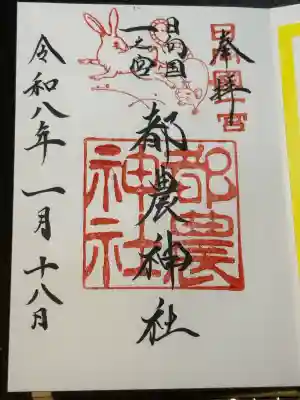 奉拝
日向国
一之宮
都農神社
都農
神社
令和八年一月十八日